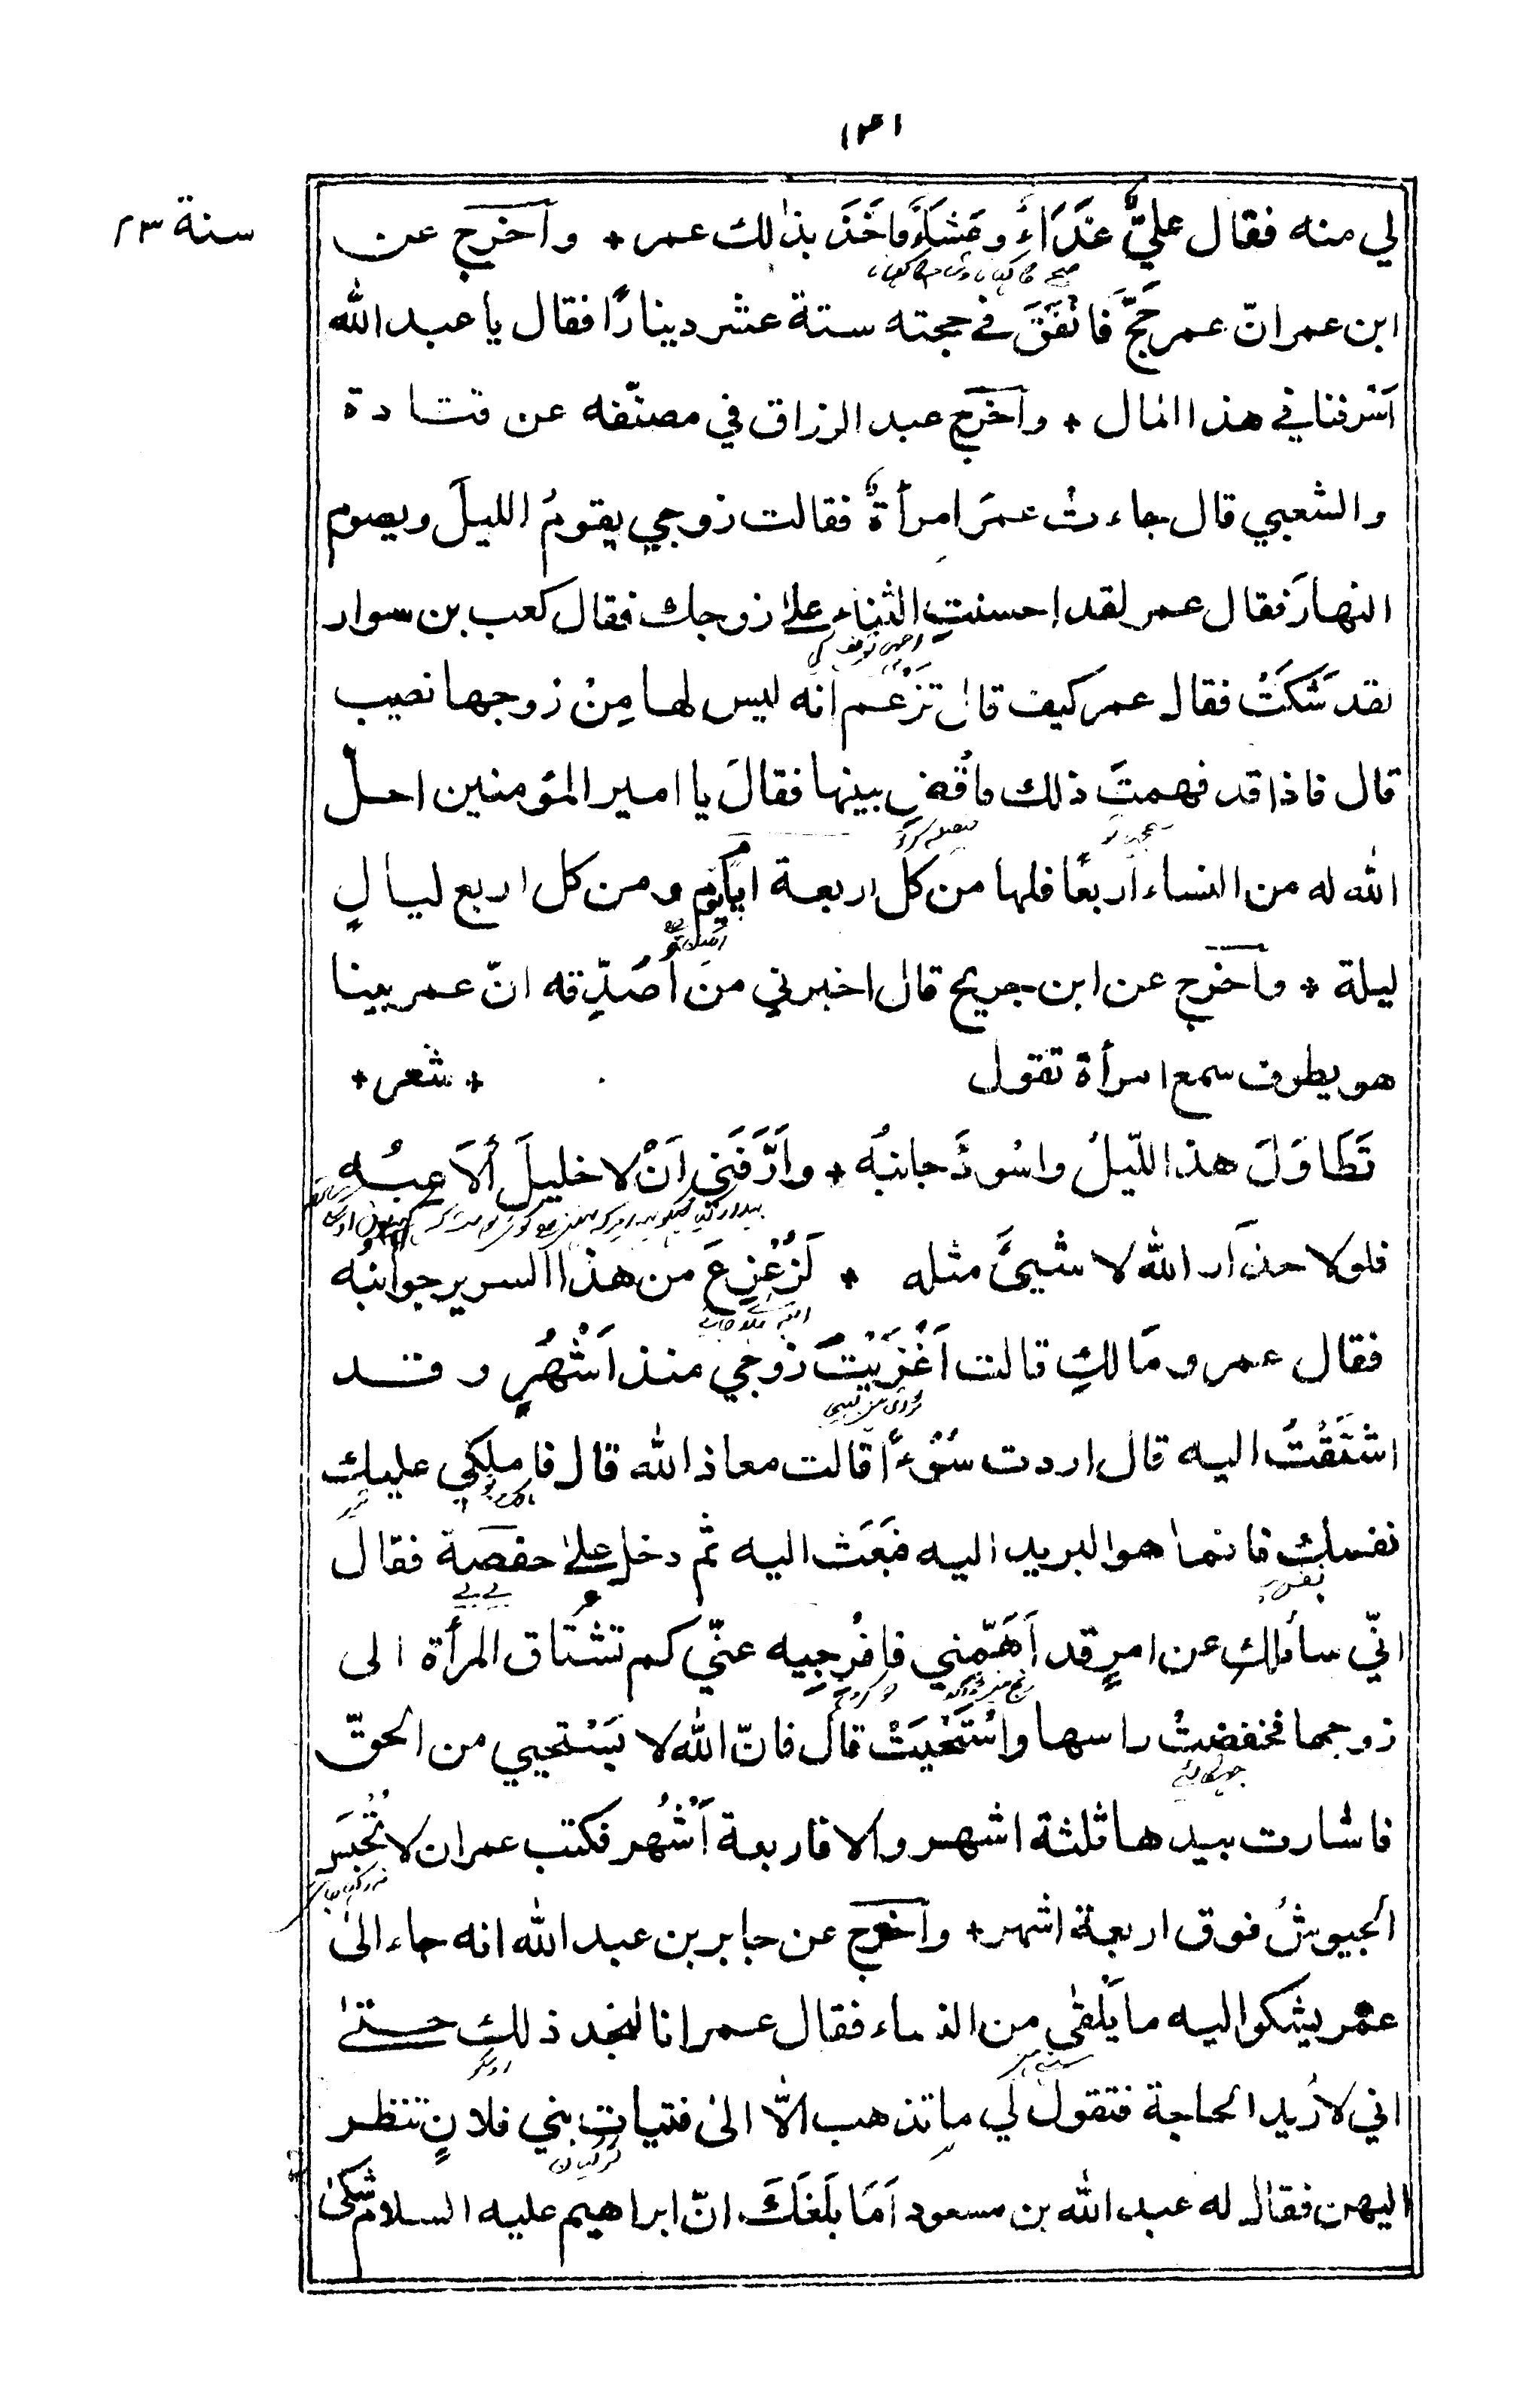 ١٤١
سنة ٢٣
لي منه فقال عليٌّ غَدَاءً وعَشَاءً فاَخَذَ بذٰلك عمر * واَخرج عن
ابن عمر انّ عمر حَجَّ فَانْفَقَ في حجته ستة عشر دينارًا فقال يا عبد الله
اَسْرفنا في هذا المال * واَخرج عبد الرزاق في مصنّفه عن قتادة
والشعبي قال جاءتْ عمرَ امرأةٌ فقالت زوجي يقومُ الليلَ ويصوم
النهارَ فقال عمر لقد احسنتِ الثناء علىٰ زوجك فقال كعب بن سوار
لقد شَكَتْ فقال عمر كيف قال تَزْعُم انه ليس لها مِنْ زوجها نصيب
قال فاذا قد فهمتَ ذلك فاقْضِ بينهما فقالَ يا امير المؤمنين احلّ
الله له من النساء اَربعًا فلها من كل اربعة ايام يوم ومن كل اربع ليالٍ
ليلة * واَخرج عن ابن جريج قال اخبرني من اُصَدِّقه انّ عمر بينا
هو يطوف سمع امرأة تقول * شعر *
تَطَاوَلَ هذا اللّيلُ واسْودَّ جانبُه * واَرَّقَني اَنْ لا خليلَ اُلاَعِبُه
فلولا حذَار الله لا شيئَ مثله * لَزُعْزِعَ من هذا السرير جوانبُه
فقال عمر ومَا لكِ قالت اَغْزَيْتَ زوجي منذ اَشْهُرٍ وقد
اشتَقْتُ اليه قال اردت سُوْءًا قالت معاذ الله قال فاملِكي عليكِ
نفسك فانما هو البريد اليه فبَعَث اليه ثم دخل علىٰ حفصة فقال
انّي سائلكِ عن امرٍ قد اَهَمّني فافْرِجِيه عنّي كم تشتاق المرأة الى
زوجها فخفضتْ راسها واسْتَحْيَتْ قال فانّ الله لا يَسْتحيي من الحقّ
فاشارت بيدها ثلثة اشهر والا فاربعة اَشْهُر فكتب عمر ان لا تُحْبَسَ
الجيوشُ فوق اربعة اشهر * واَخرج عن جابر بن عبد الله انه جاء الىٰ
عمر يشكوا اليه ما يَلْقٰى من النساء فقال عمر انا لنجد ذلك حتىٰ
اني لاُريد الحاجة فتقول لي ما تذهب الّا الىٰ فتيات بني فلانٍ تنظر
اليهن فقال له عبد الله بن مسعود اَمَا بلَغَكَ انّ ابراهيم عليه السلام شكىٰ